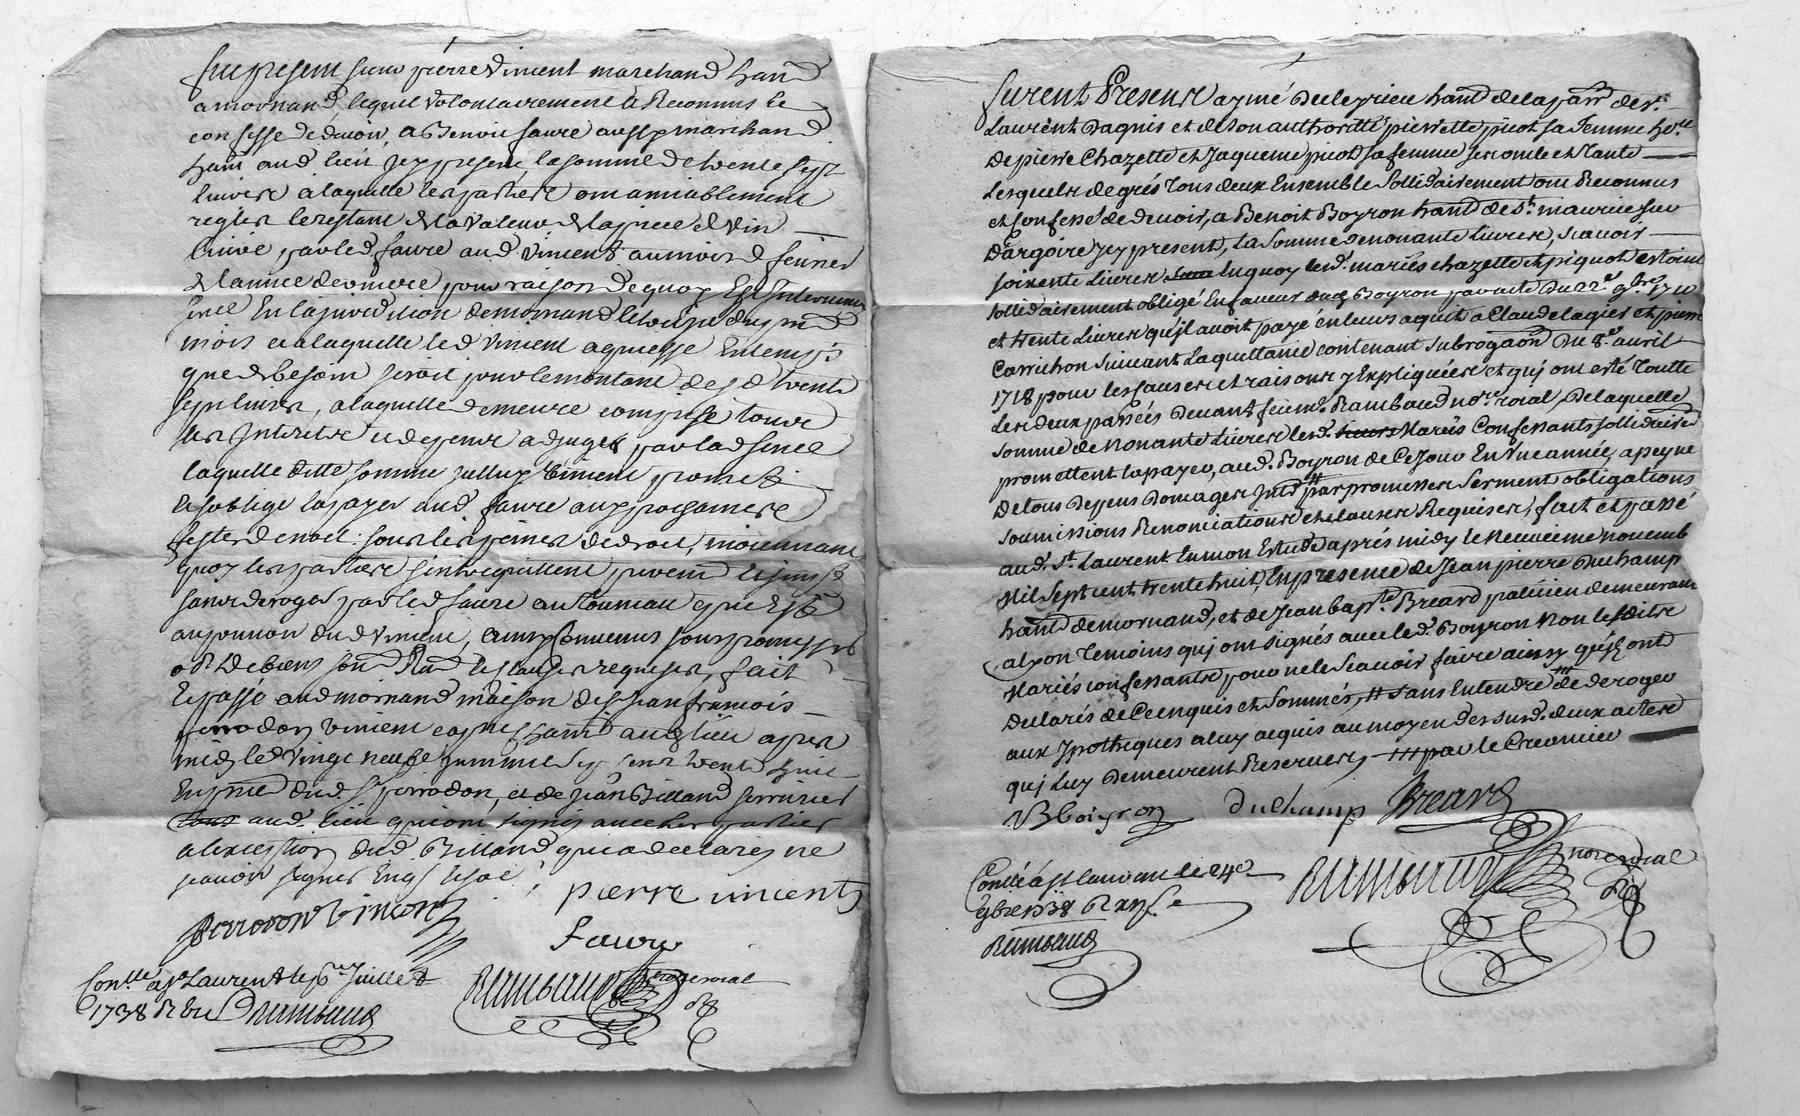 fut present sieur pierre Vincent marchand habt
a mornand, lequel volontairement a Reconnus et
confesse de devoir, a Benoit faure aussy marchand
habt aud lieu Jcy present, la somme de trente sept
livres a laquelle les parties ont amiablement
regler le restant de la valeur de la piece de vin
livré par led faure aud Vincent au mois de fevrier
de l'annee derniere pour raison de quoy Est Intervenue
en la jurisdiction de mornand
mois a laquelle led Vincent acquiesse En temps
que de besoin seroit pour le montant desd trente
sept livres, a laquelle demeure compris tous
les Interets et depens adjugés par lad
laquelle ditte somme led Vincent promet
et s'oblige la payer aud faure aux prochaines
festes de noel sous les peines de droit, moiennant
quoy les parties
sans deroger par led faure au tonneau que Est
au pouvoir dud Vincent, ainsy Convenus sous promesses
obl de biens et clauses requises, fait
Et passé aud mornand maison de sr Jean francois
perrodon Vincent habt aud lieu apres
midy le Vingt neuf Juin mil sept cent trente huit
En pnce dud sr perrodon, et de Jean Billand serrurier
aud lieu qui ont signés avec les parties
a l'exception dud Billand qui a declarés ne
scavoir signer Enquis
Perrodon Vincent pierre vincent
faure
Conllé a st Laurent le Juillet
1738 Rambaud
Rambaud nore roial
furent Presens aymé Duleyrieu habt de la parr de st
Laurent Dagnis et de son authoritté pierrette picot sa femme
De pierre Chazette et Jaqueme picot sa femme et tante
Lesquels de grés tous deux Ensemble sollidairement ont Reconnus
et Confessé de devoir, a Benoit Boyron habt de st maurice sur
Dargoire Jcy present, la somme de nonante livres, scavoir
soixante livres En quoy lesd mariés chazette et piquot estoient
sollidairement obligé En faveur dud Boyron par acte du 22e 9bre 1710
et trente livres qu'jl avoit payé en leurs acquit a Claude lagier et pierre
Corrichon suivant la quittance contenant subrogaon du 8e avril
1718 pour les causes et raisons y Expliquées et quj ont esté toutte
les deux passées devant feu me Rambaud nore roial, de laquelle
somme de nonante livres lesd Mariés Confessants sollidaires
promettent la payer, aud Boyron de Ce jour En Une année, a peyne
De tous depens domages Jntts par promesses serment obligations
soumissions Renonciations et clauses Requises, fait et passé
aud st Laurent En mon Estude après midy le neuvieme novemb
Mil sept cent trente huit, En presence de Jean pierre Duchamp
habt de mornand, et de Jean bapte Breard praticien demeurant
a lyon temoins quj ont signés avec led Boyron Non lesdites
Mariés confessants pour ne le scavoir faire ainsy qu'jls ont
Declarés de Ce enquis et sommés, # sans Entendre de deroger
aux ypotheques a luy acquis au moyen des susd deux actes
quj luy demeurent Reservés, par le Creancier
B boiyron Duchamp Breard
Conllé a st laurant le 24e
9bre 1738
Rambaud
Rambaud nore roial